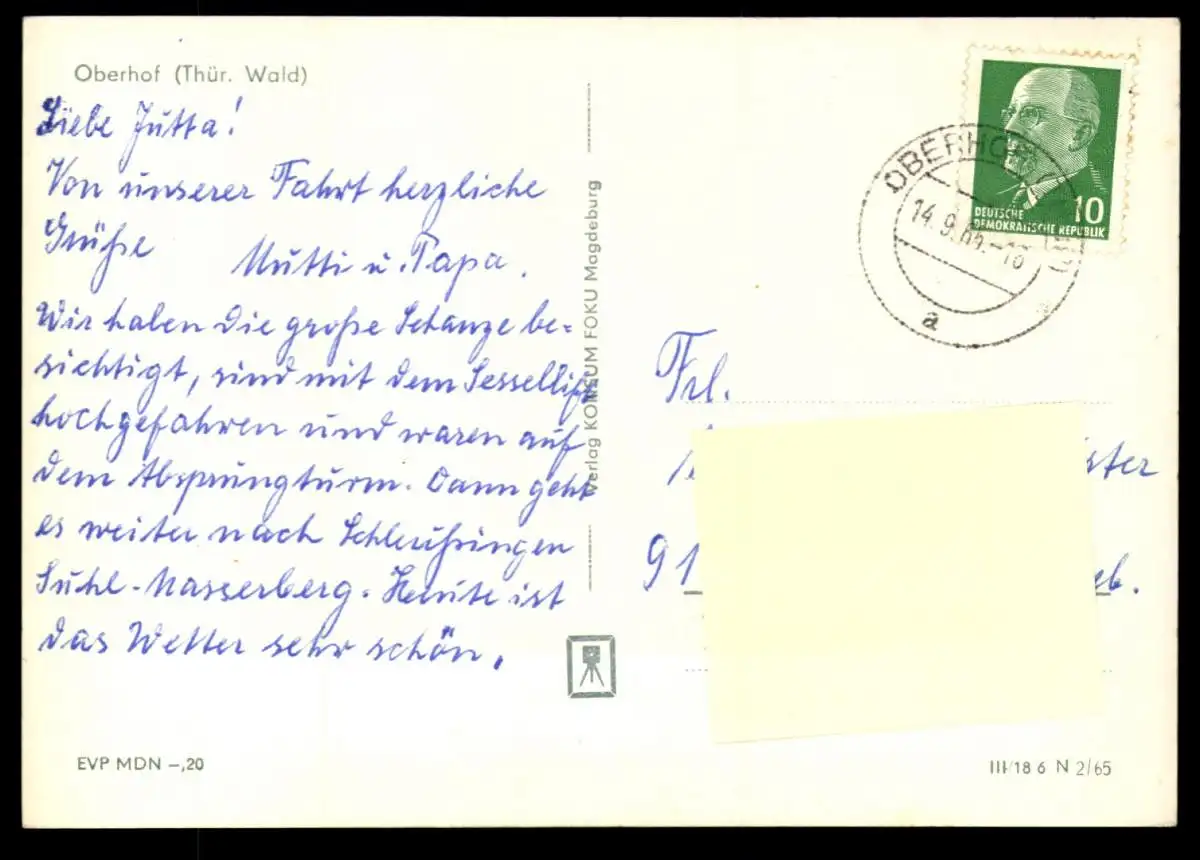 Oberhof (Thür. Wald)
Liebe Jutta!
Von unserer Fahrt herzliche
Grüße
Mutti u. Papa.
Wir haben die große Schanze be=
sichtigt, sind mit dem Sessellift
hochgefahren und waren auf
dem Absprungturm. Dann geht
es weiter nach Schleußingen
Suhl-Masserberg. Heute ist
das Wetter sehr schön.
EVP MDN –,20
Verlag KONSUM FOKU Magdeburg
10
DEUTSCHE
DEMOKRATISCHE REPUBLIK
OBERHOF
14.9.
a
Frl.
ster
91
eb.
III/18 6 N 2/65